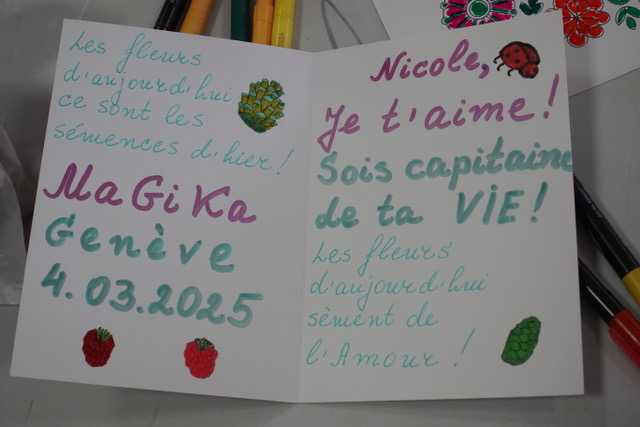 Les fleurs
d'aujourd'hui
ce sont les
sémences d'hier!
MaGiKa
Genève
4.03.2025
Nicole,
Je t'aime!
Sois capitaine
de ta ViE!
Les fleurs
d'aujourd'hui
sèment de
l'Amour!